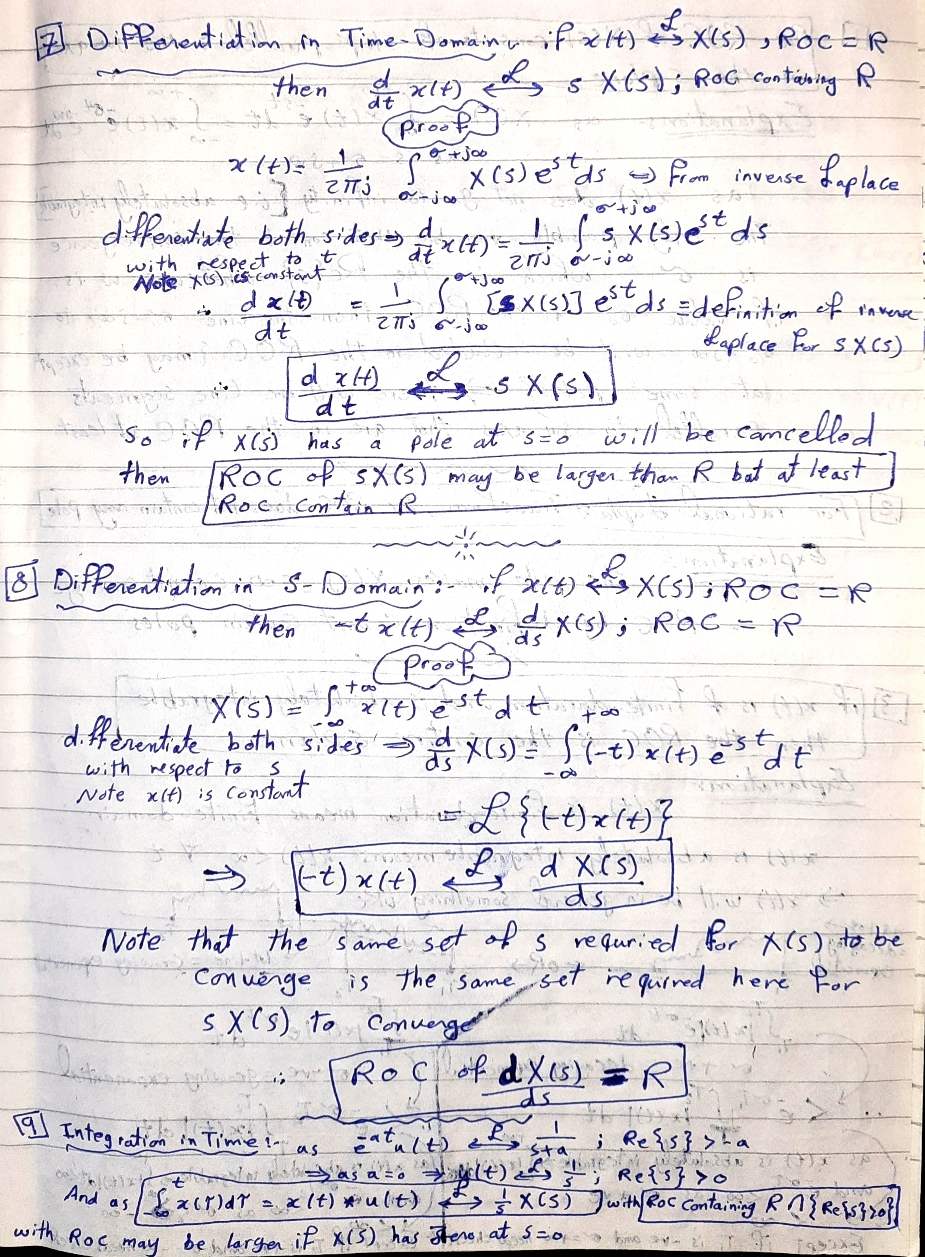 7 Differentiation in Time-Domain, if x(t) ⟷ℒ X(s), ROC = R
then d/dt x(t) ⟷ℒ s X(s); ROC containing R
Proof
x(t) = 1/2πj ∫_{σ-j∞}^{σ+j∞} X(s) e^{st} ds ⇒ from inverse Laplace
differentiate both sides ⇒ d/dt x(t) = 1/2πj ∫_{σ-j∞}^{σ+j∞} s X(s) e^{st} ds
with respect to t
Note X(s) is constant
∴ d x(t)/dt = 1/2πj ∫_{σ-j∞}^{σ+j∞} [s X(s)] e^{st} ds = definition of inverse
Laplace for s X(s)
∴ d x(t)/dt ⟷ℒ s X(s)
So if X(s) has a pole at s=0 will be cancelled
then ROC of sX(s) may be larger than R but at least
ROC contain R
8 Differentiation in S-Domain:- if x(t) ⟷ℒ X(s); ROC = R
then -t x(t) ⟷ℒ d/ds X(s); ROC = R
Proof
X(s) = ∫_{-∞}^{+∞} x(t) e^{-st} dt
differentiate both sides ⇒ d/ds X(s) = ∫_{-∞}^{+∞} (-t) x(t) e^{-st} dt
with respect to s
Note x(t) is constant
= ℒ {(-t) x(t)}
⇒ (-t) x(t) ⟷ℒ d X(s)/ds
Note that the same set of s requried for X(s) to be
converge is the same set required here for
s X(s) to converge
∴ ROC of dX(s)/ds = R
9 Integration in Time:- as e^{-at} u(t) ⟷ℒ 1/s+a ; Re{s} > -a
⇒ as a=0 ⇒ u(t) ⟷ℒ 1/s ; Re{s} > 0
And as ∫_{-∞}^{t} x(τ)dτ = x(t) * u(t) ⟷ℒ 1/s X(s) with ROC containing R ∩ {Re{s}>0}
with ROC may be larger if X(s) has zero at s=0